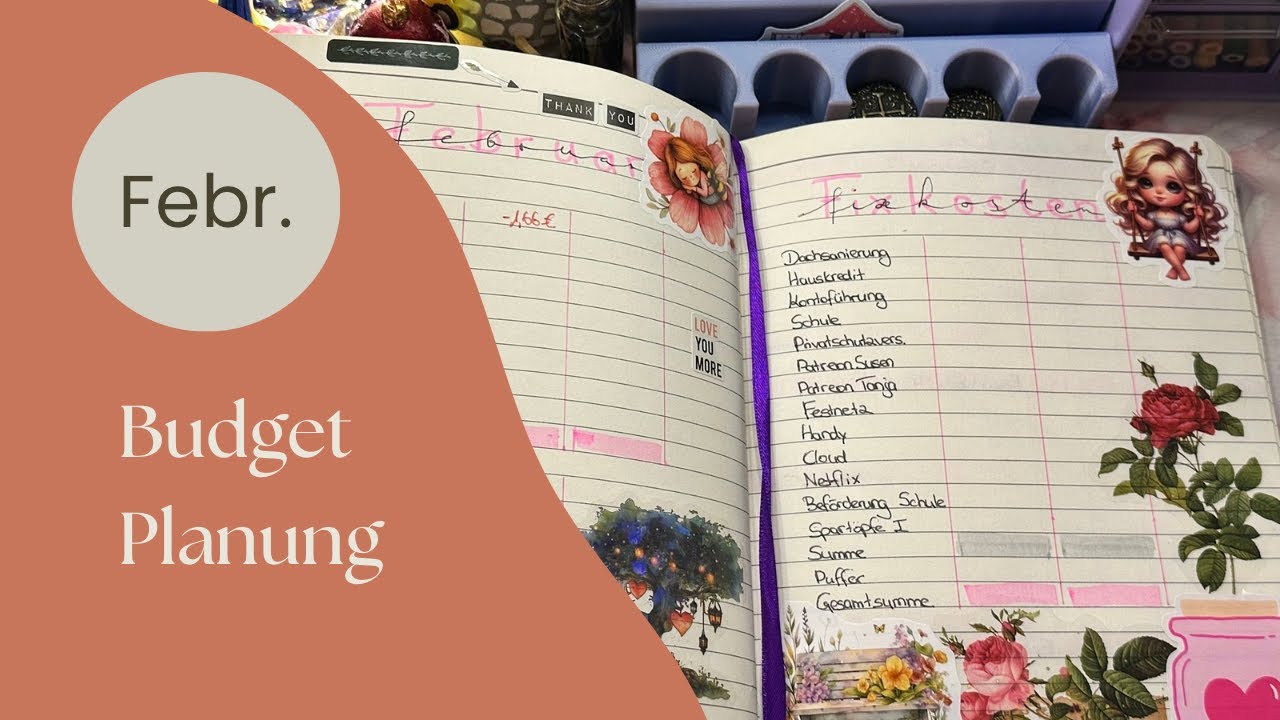 Febr.
Budget
Planung
THANK YOU
Februar
-1,66€
LOVE
YOU
MORE
Fixkosten
Dachsanierung
Hauskredit
Kontoführung
Schule
Privatschutzvers.
Patreon Susen
Patreon Tanja
Festnetz
Handy
Cloud
Netflix
Beförderung Schule
Spartöpfe I
Summe
Puffer
Gesamtsumme